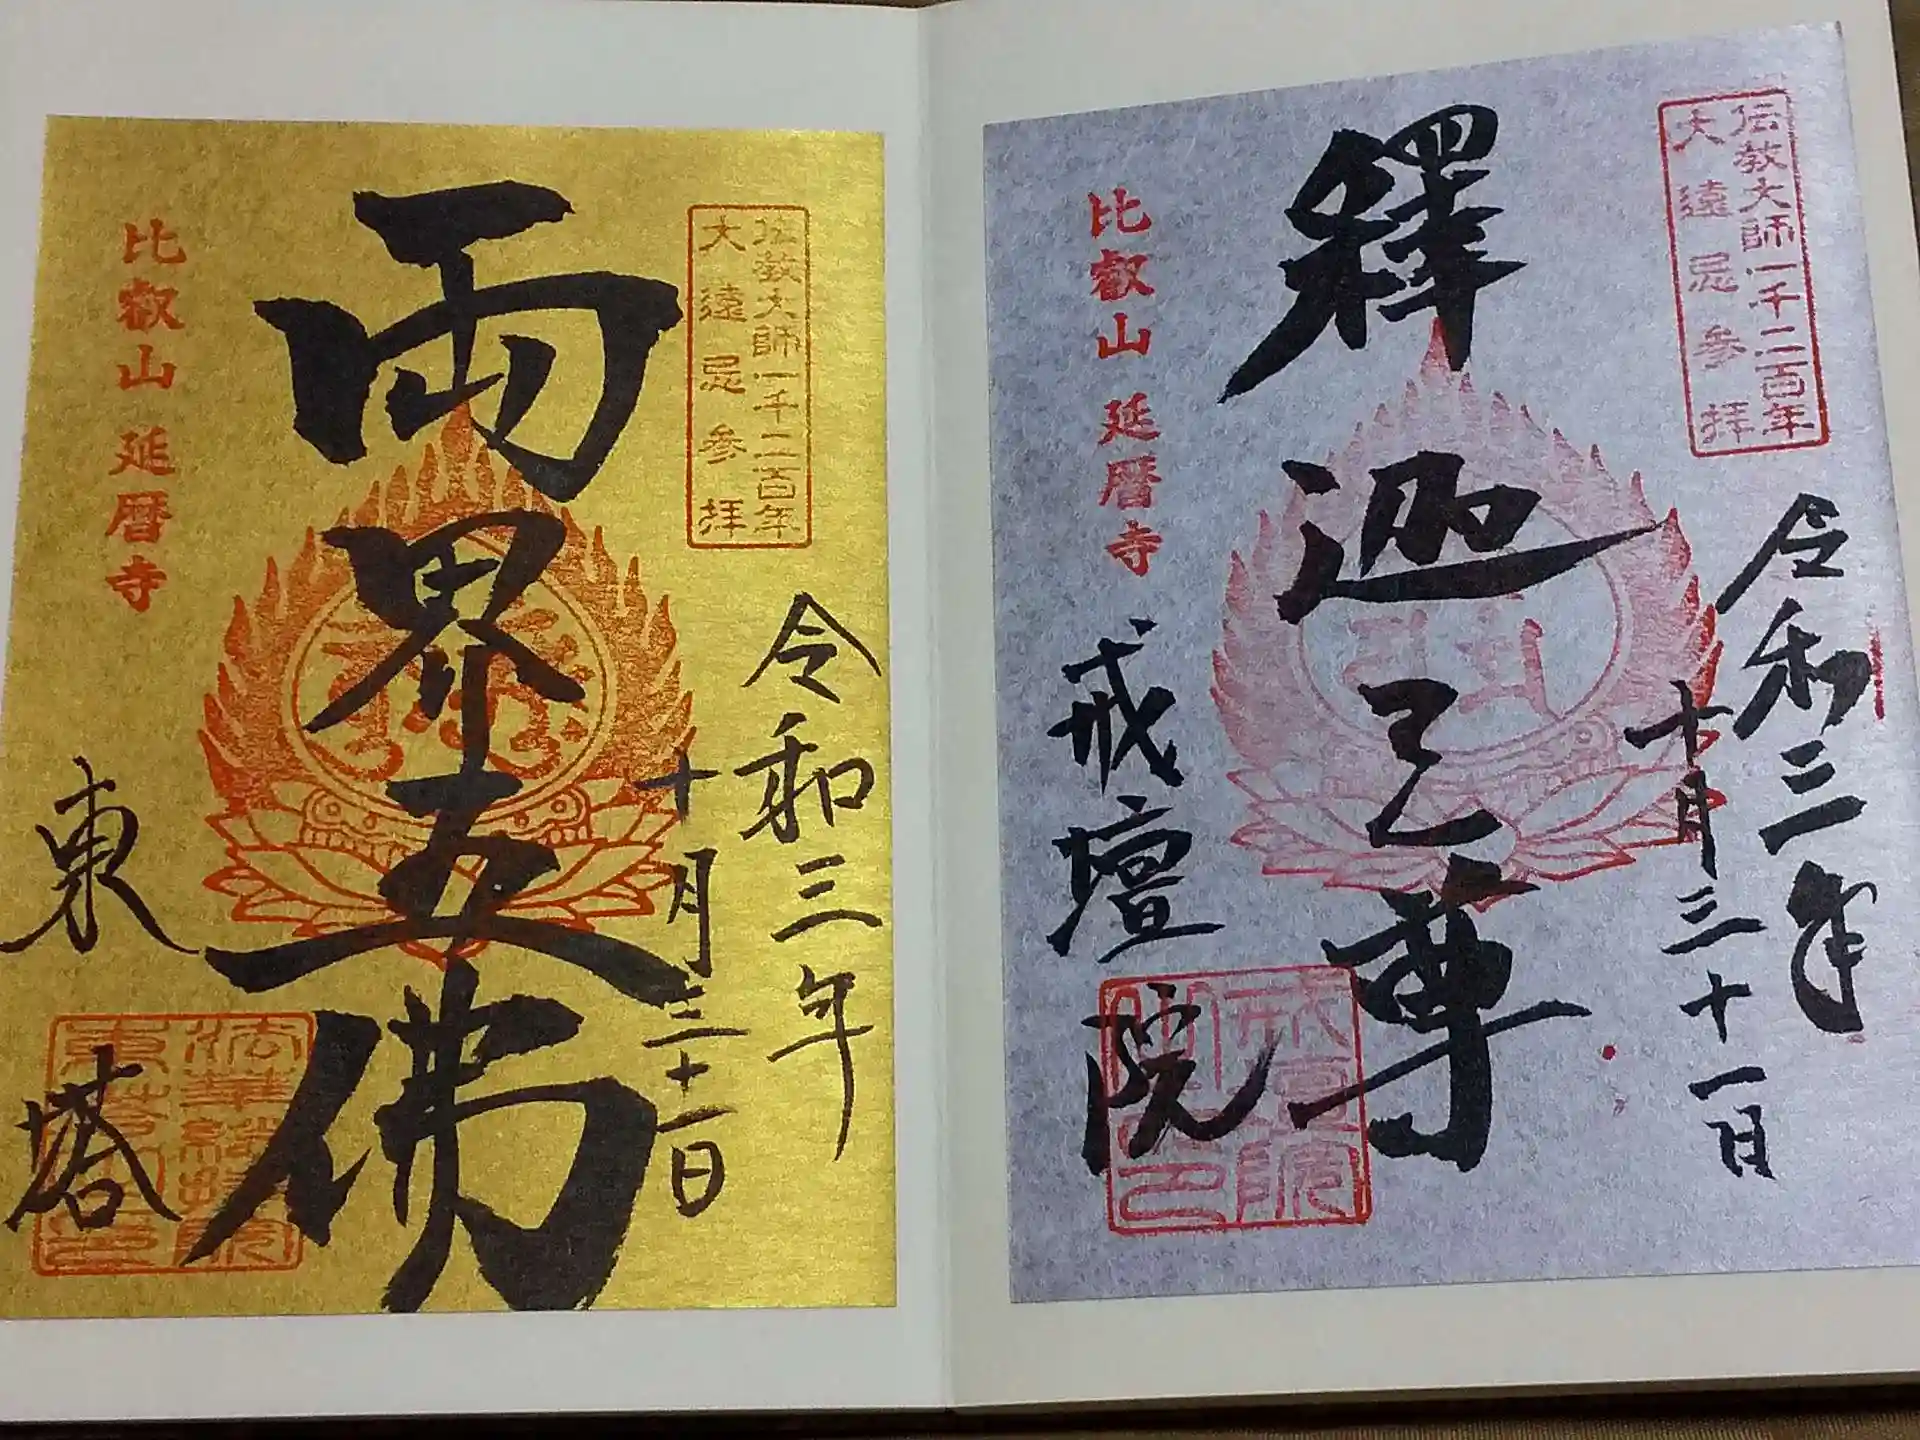 伝教大師一千二百年
大遠忌参拝
令和三年
十月三十一日
釋迦三尊
比叡山 延暦寺
戒壇院
伝教大師一千二百年
大遠忌参拝
令和三年
十月三十一日
両界五佛
比叡山 延暦寺
東塔
法華総持院